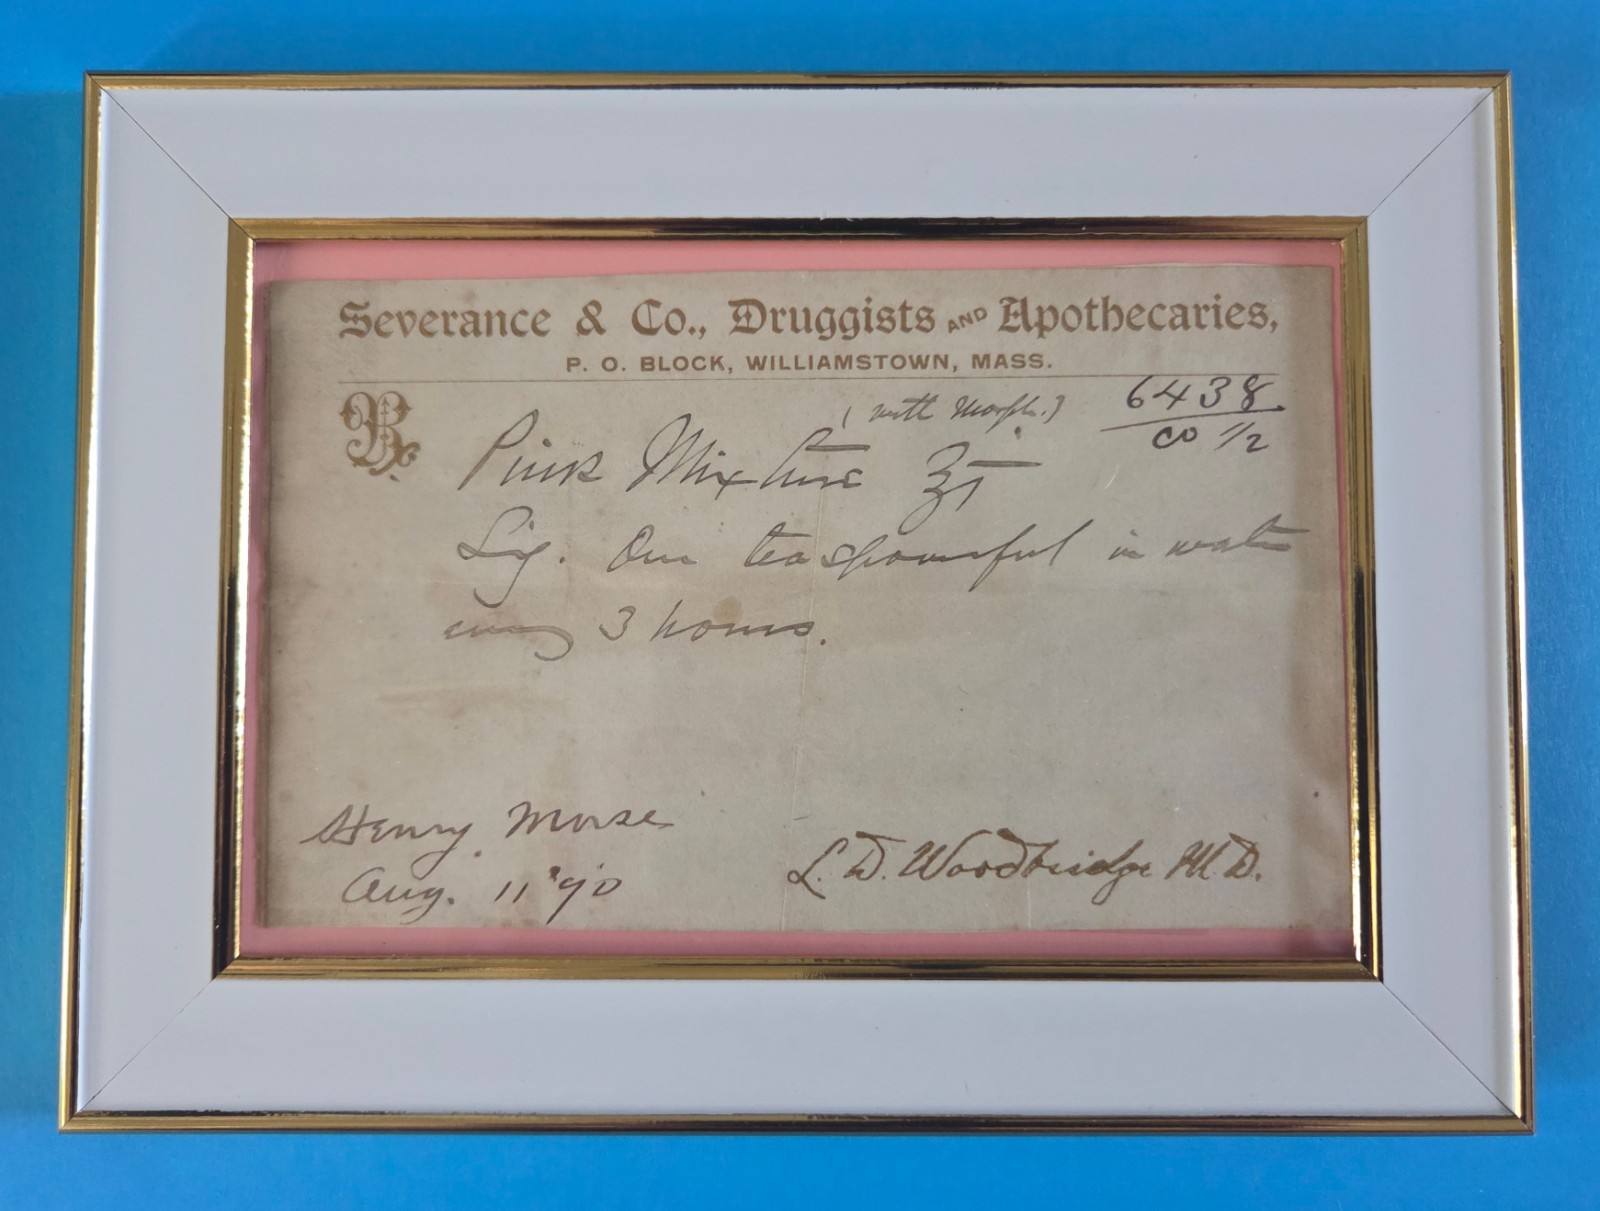 Severance & Co., Druggists AND Apothecaries,
P. O. BLOCK, WILLIAMSTOWN, MASS.
Rx
6438
co 1/2
(with Morph.)
Pink Mixture ℥i
Sig. One teaspoonful in water
every 3 hours.
Henry Morse
Aug. 11 '90
L. D. Woodbridge M.D.